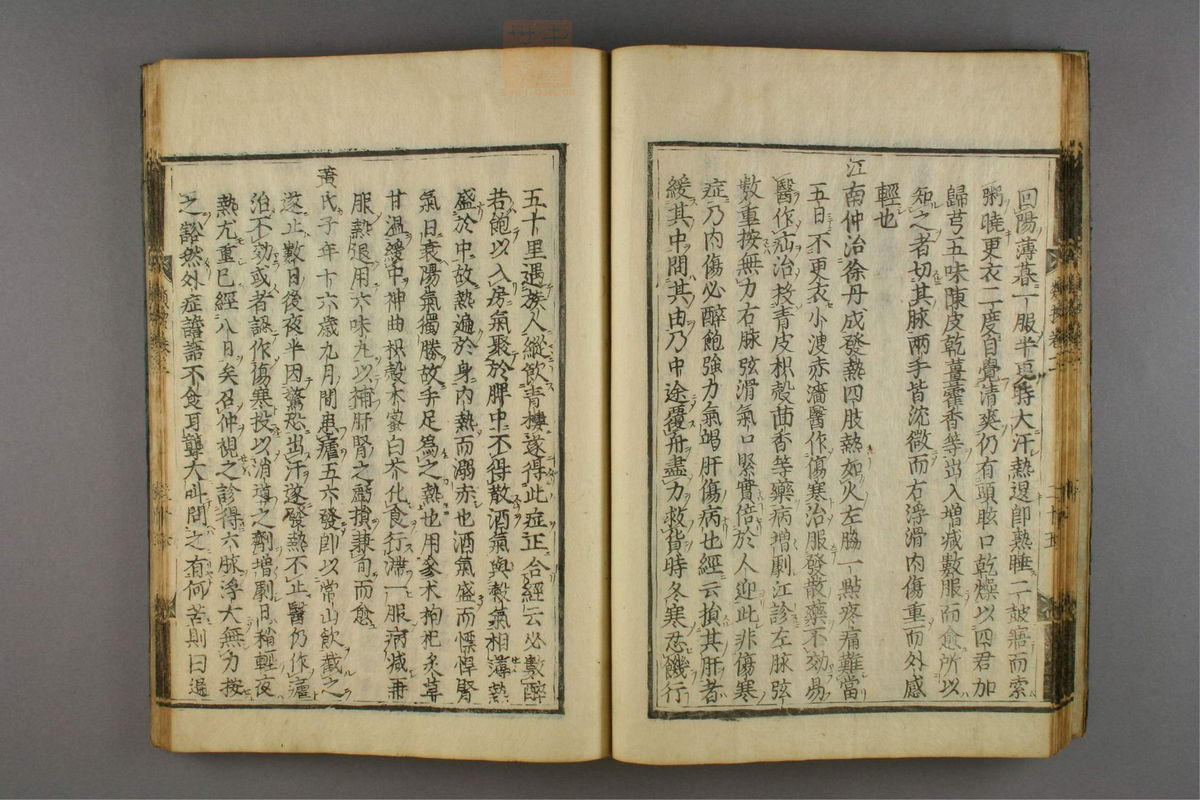 回陽薄暮一服半更時大汗熱退卽熱睡二皷寤而索
粥曉更衣一度自覺清爽仍有頭眩口乾燥以四君加
歸芎五味陳皮乾薑藿香等出入増減數服而愈所以
知之者切其脉兩手皆沈微而右浮滑内傷重而外感
輕也
江南仲治徐丹成發熱四肢熱如火左脇一點疼痛難當
五日不更衣小溲赤濇醫作傷寒治服發散藥不効易
醫作疝治投青皮枳殻茴香等藥病增劇江診左脉弦
數重按無力右脉弦滑氣口緊實倍於人迎此非傷寒
症乃内傷必醉飽強力氣竭肝傷病也經云損其肝者
緩其中問其由乃中途覆舟盡力救貨時冬寒忍饑行
五十里遇族人縱飲青樓遂得此症正合經云必數醉
若飽以入房氣聚於脾中不得散酒氣與穀氣相薄熱
盛於中故熱遍於身内熱而溺赤也酒氣盛而慓悍腎
氣日衰陽氣獨勝故手足爲之熱也用參朮枸杞炙草
甘温緩中神曲枳殻木蜜白芥化食行滯一服病减再
服熱退用六味丸以補肝腎之虧損兼旬而愈
黄氏子年十六歲九月間患瘧五六發卽以常山飲截之
遂止數日後夜半因驚恐出汗遂發熱不止醫仍作瘧
治不効或者認作傷寒投以消導之劑増劇日稍輕夜
熱尤重已經八日矣召仲視之診得六脉浮大無力按
之豁然外症譫語不食耳聾大叫問之有何苦則曰遍